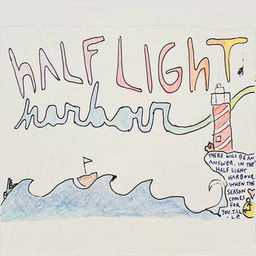 HALF LIGHT
harbour
THERE WILL BE AN
ANSWER, IN THE
HALF LIGHT
HARBOUR
WHEN THE
SEASON
COMES
FOR
YOU,